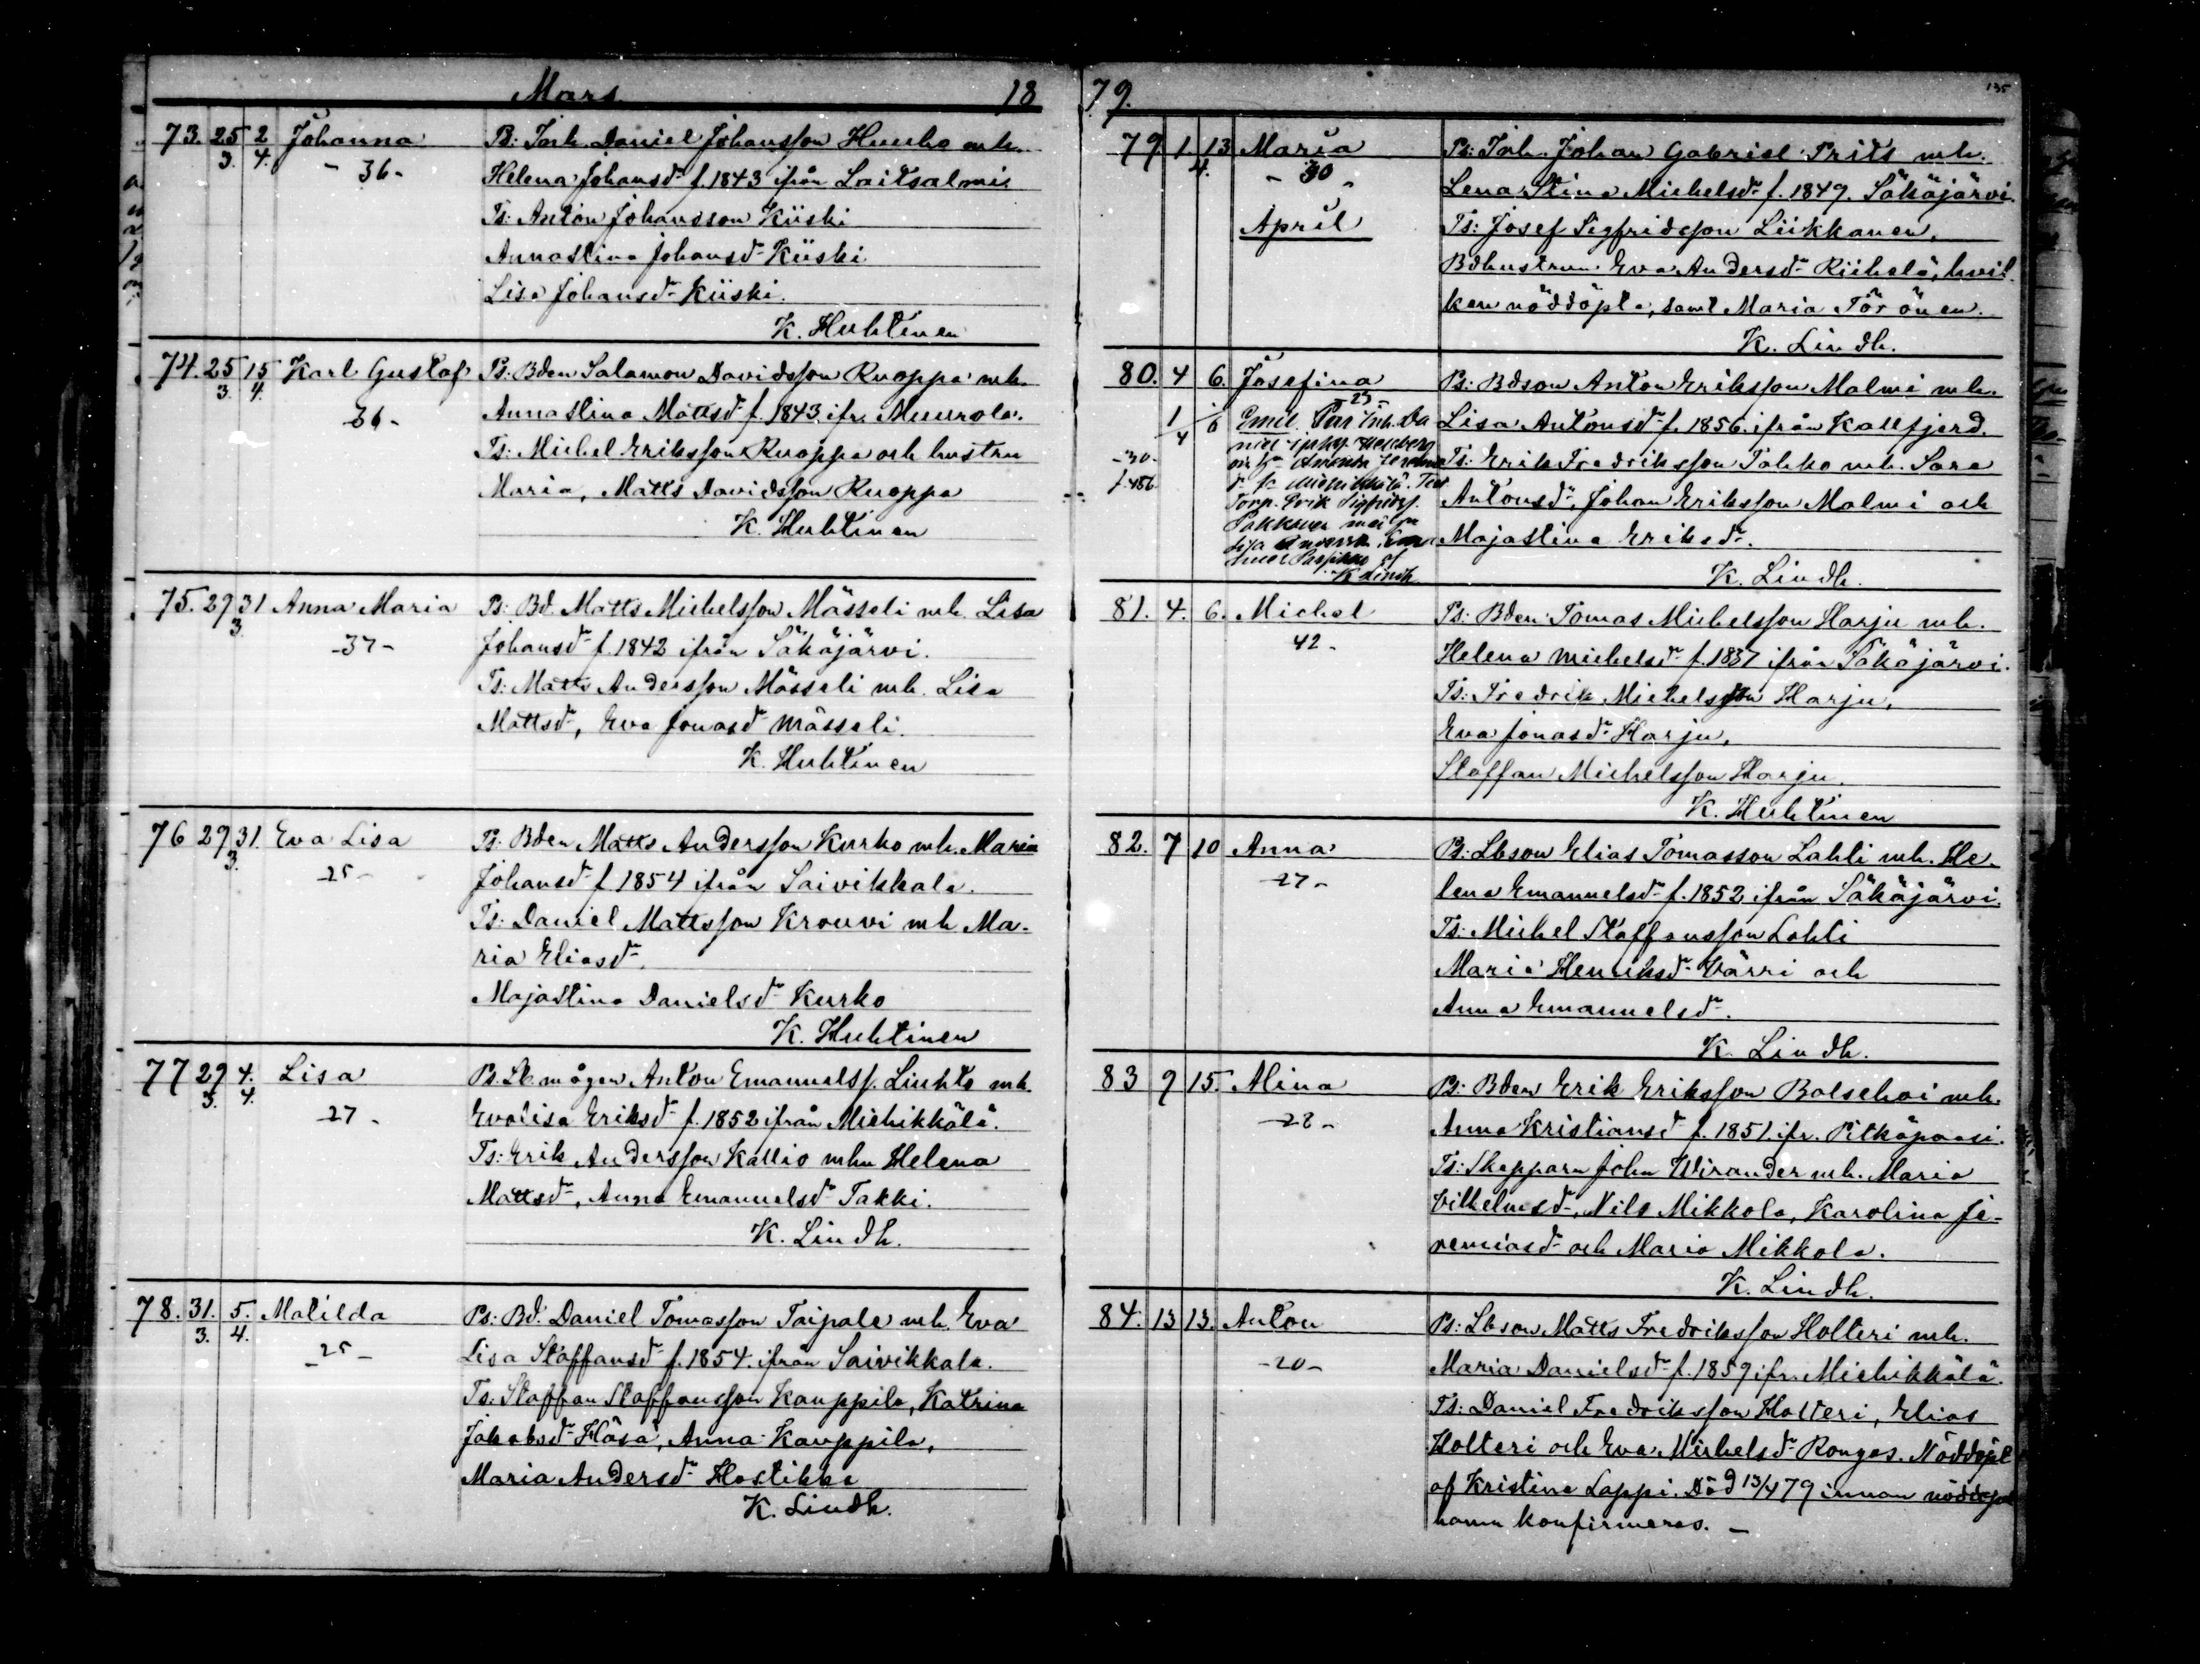 Mars 18
73. 25/3. 2/4. Johanna Ps: Inh. Daniel Johansson Huuho mh.
- 36 - Helena Johansdr f. 1843 ifrån Laitsalmi
Ts: Anton Johansson Kiiski
Annastina Johansdr Kiiski
Lisa Johansdr Kiiski.
K. Huhtinen
74. 25/3. 15/4. Karl Gustaf Ps: Bden Salamon Davidsson Ruoppa mh.
36 - Annastina Mattsdr f. 1843. ifr. Muurola.
Ts: Michel Eriksson Ruoppa och hustru
Maria, Matts Davidsson Ruoppa
K. Huhtinen
75. 29 31/3. Anna Maria Ps: Bd. Matts Michelsson Mässeli mh. Lisa
- 37 - Johansdr f. 1842 ifrån Säkäjärvi.
Ts: Matts Andersson Mässeli mh. Lisa
Mattsdr, Eva Jonasdr Mässeli.
K. Huhtinen
76 29 31/3. Eva Lisa Ps: Bden Matts Andersson Kurko mh. Maria
25 - Johansdr f. 1854 ifrån Saivikkala.
Ts: Daniel Mattsson Krouvi mh. Ma-
ria Eliasdr,
Majastina Danielsdr Kurko
K. Huhtinen
77 29/3. 4./4. Lisa Ps. Lb. mågen Anton Emanuelss. Liuhto mh.
27 - Evalisa Eriksdr f. 1852 ifrån Miehikkälä.
Ts: Erik Andersson Kallio mhu Helena
Mattsdr, Anna Emanuelsdr Takki.
K. Lindh.
78. 31./3. 5./4. Matilda Ps: Bd. Daniel Tomasson Taipale mh. Eva
- 25 - Lisa Staffansdr f. 1854. ifrån Saivikkala.
Ts: Staffan Staffansson Kauppila, Katrina
Jakobsdr Häsä, Anna Kauppila,
Maria Andersdr Hostikka
K. Lindh.
79. 135
79. 1 13/4. Maria Ps: Inh. Johan Gabriel Prits mh.
- 30 - Lena Stina Michelsdr f. 1849. Säkäjärvi.
April Ts: Josef Sigfridsson Liikkanen,
Bdhustrun Eva Andersdr Riihelä, hvil-
ken nöddöpte, samt Maria Törönen.
K. Lindh.
80. 4 6. Josefina Ps: Bdson Anton Eriksson Malmi mh.
- 23 -
1/4 6 Emil. Par Inh. Da Lisa Antonsdr f. 1856. ifrån Kallfjerd.
- 30 - Ts: Erik Fredriksson Pahko mh. Sara
f. 486 Miehikkälä. Test
Torp. Erik Sigfridss. Antonsdr, Johan Eriksson Malmi och
Pakkanen med
Lisa Majastina Eriksdr.
K Lindh
K. Lindh.
81. 4. 6. Michel Ps: Bden Tomas Michelsson Harju mh.
42 - Helena Michelsdr f. 1837 ifrån Säkäjärvi.
Ts: Fredrik Michelsson Harju,
Eva Jonasdr Harju,
Staffan Michelsson Harju.
K. Huhtinen
82. 7 10 Anna Ps: Lbson Elias Tomasson Lahti mh. He-
27 - lena Emanuelsdr f. 1852 ifrån Säkäjärvi.
Ts: Michel Staffansson Lahti
Maria Henriksdr Värri och
Anna Emanuelsdr.
K. Lindh.
83 9 15. Mina Ps: Bden Erik Eriksson Bolsehoi mh.
28 - Anna Kristiansdr f. 1851. ifr. Pitkäpaasi.
Ts: Skepparn John Wirander mh. Maria
Vilhelmsdr, Nils Mikkola, Karolina Je-
remiasdr och Maria Mikkola.
K. Lindh.
84. 13 13. Anton Ps: Lbson Matts Fredriksson Holteri mh.
- 20 - Maria Danielsdr f. 1859 ifr. Miehikkälä.
Ts: Daniel Fredriksson Holteri, Elias
Holteri och Eva Michelsdr Ronges. Nöddöpt
af Kristina Lappi. Död 13/4 79 innan
hann konfirmeras. -